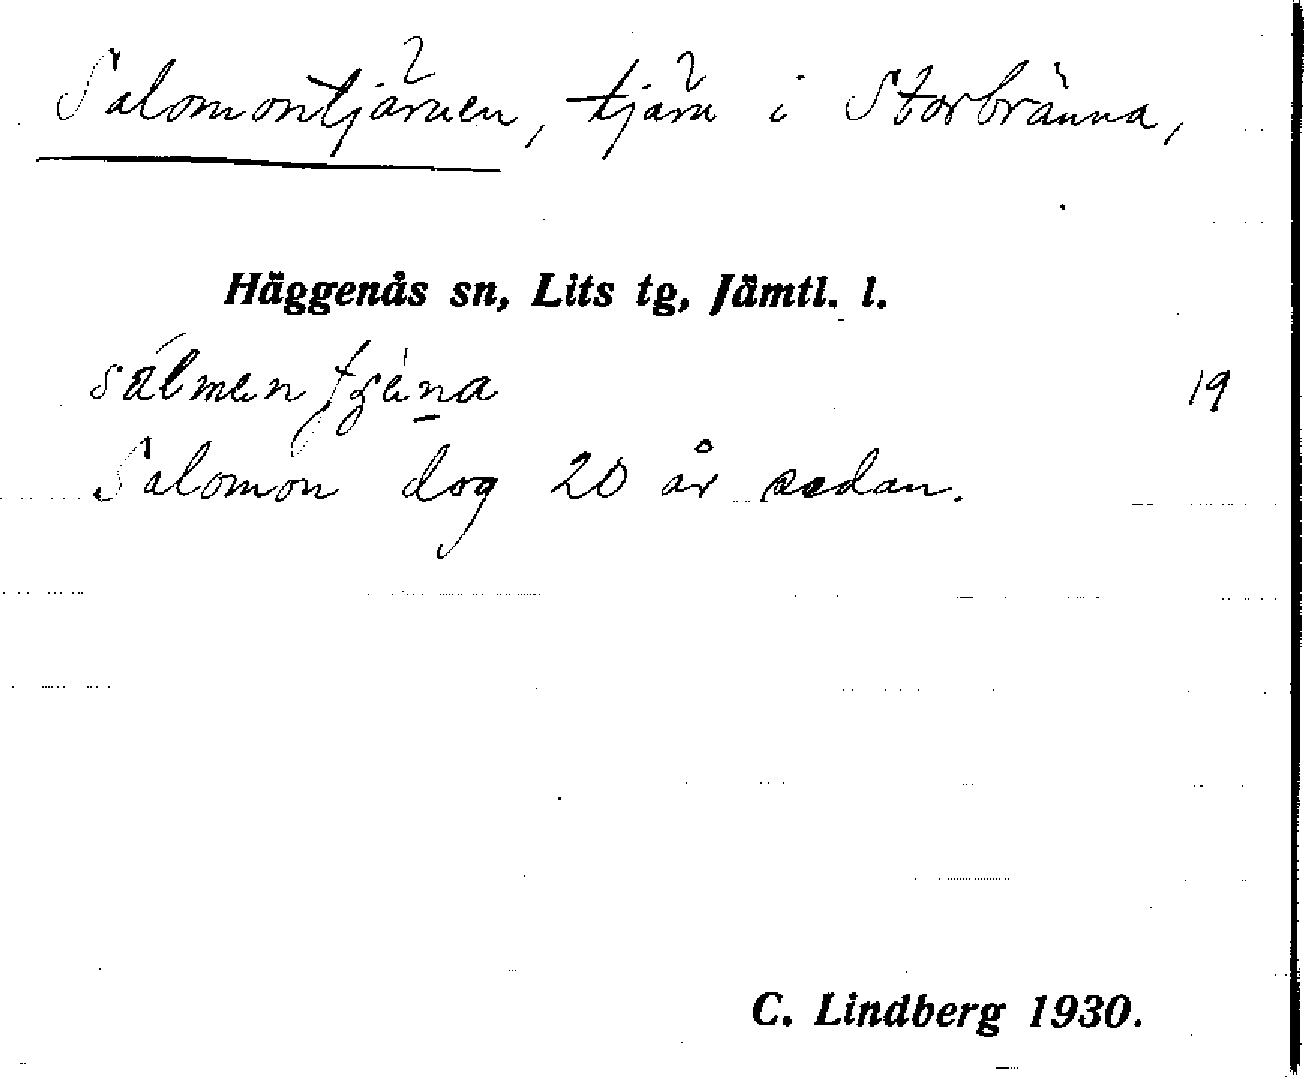 Salomontjärnen, tjärn i Storbränna,
Häggenås sn, Lits tg, Jämtl. l.
19
Salomon dog 20 år sedan.
C. Lindberg 1930.